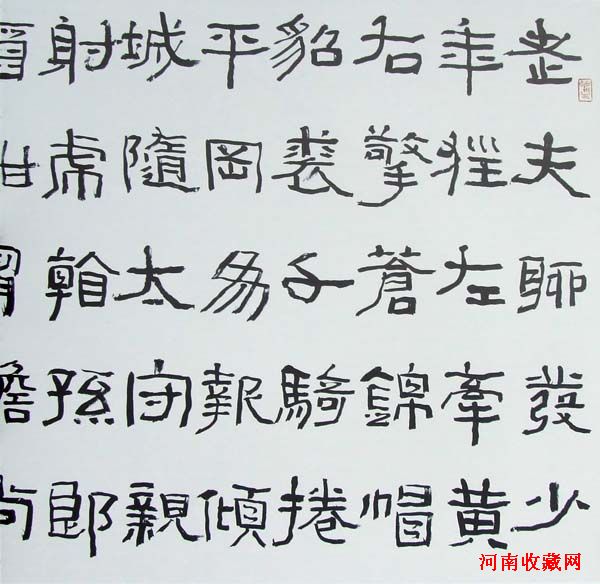 老夫聊發少
年狂左牽黃
右擎蒼錦帽
貂裘千騎捲
平岡為報傾
城隨太守親
射虎看孫郎
河南收藏网